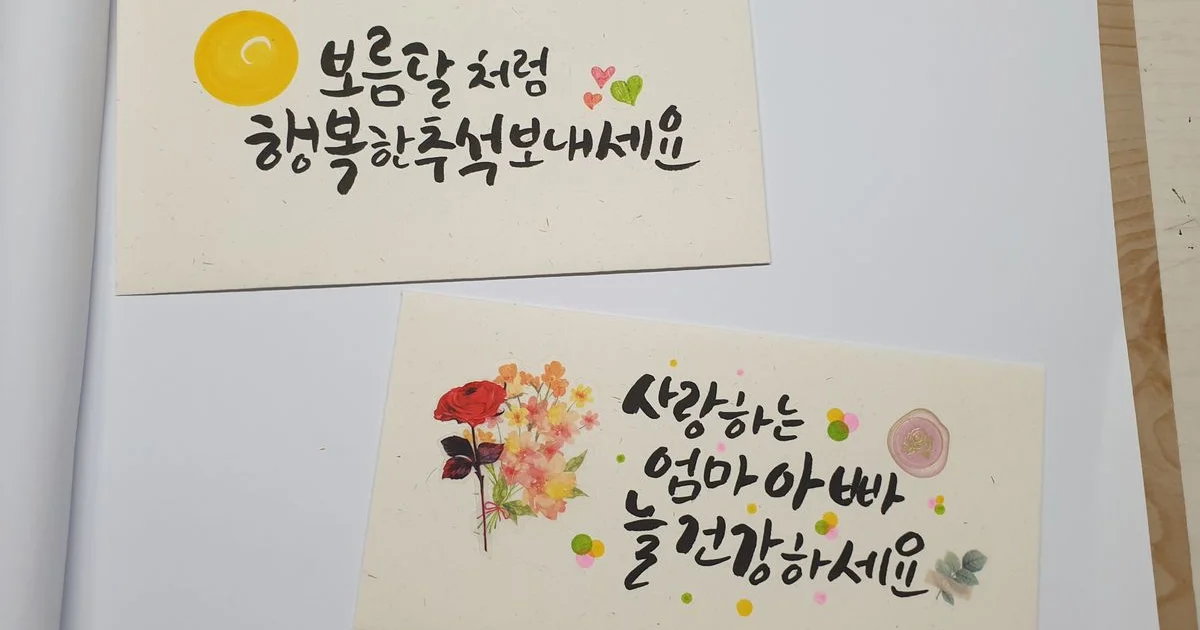 보름달처럼
행복한추석보내세요
사랑하는
엄마아빠
늘건강하세요